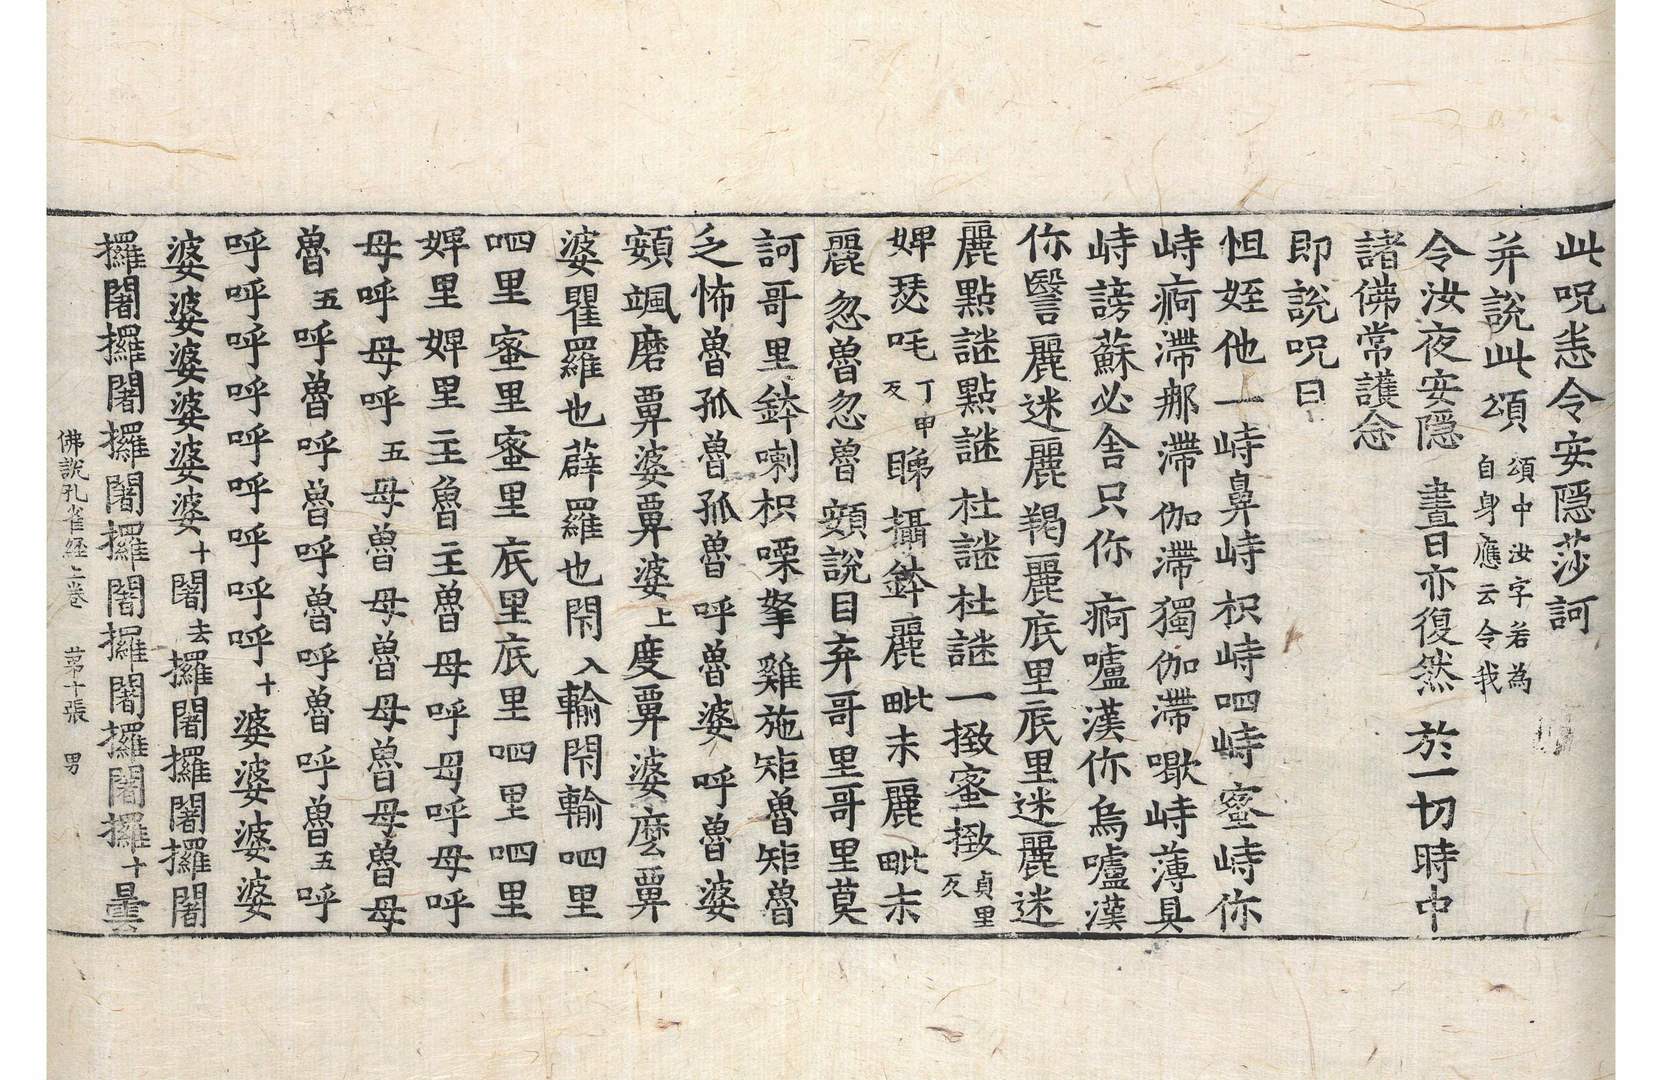 此呪恙令安隱莎訶
并說此頌 頌中汝字若為自身應云令我
令汝夜安隱 晝日亦復然 於一切時中
諸佛常護念
即說呪曰
怛姪他一 峙鼻峙枳峙呬峙蜜峙你
峙痾滯那滯 伽滯獨伽滯嚫峙薄具
峙謗蘇必舍只你 痾嚧漢你烏嚧漢
你瞖麗迷麗羯麗底里底里迷麗迷
麗點謎點謎 杜謎杜謎一緻蜜緻貞里反
婢瑟吒丁申反睇攝鉢麗 毗末麗毗末
麗忽魯忽魯 頞說目弃哥里哥里莫
訶哥里鉢喇枳㗚拏 雞施矩魯矩魯
乏怖魯孤魯孤魯 呼魯婆 呼魯婆
頞颯磨鼻婆鼻婆上度鼻婆麼鼻
婆瞿羅也薜羅也閇入輸閇輸呬里
呬里蜜里蜜里底里底里呬里呬里
婢里婢里主魯主魯母呼母呼母呼
母呼母呼五母魯母魯母魯母魯母
魯五呼魯呼魯呼魯呼魯呼魯五呼
呼呼呼呼呼呼呼呼呼十婆婆婆婆
婆婆婆婆婆婆十闍去攞闍攞闍攞闍
攞闍攞闍攞闍攞闍攞闍攞闍攞十曇
佛說孔雀経上卷 第十張 男